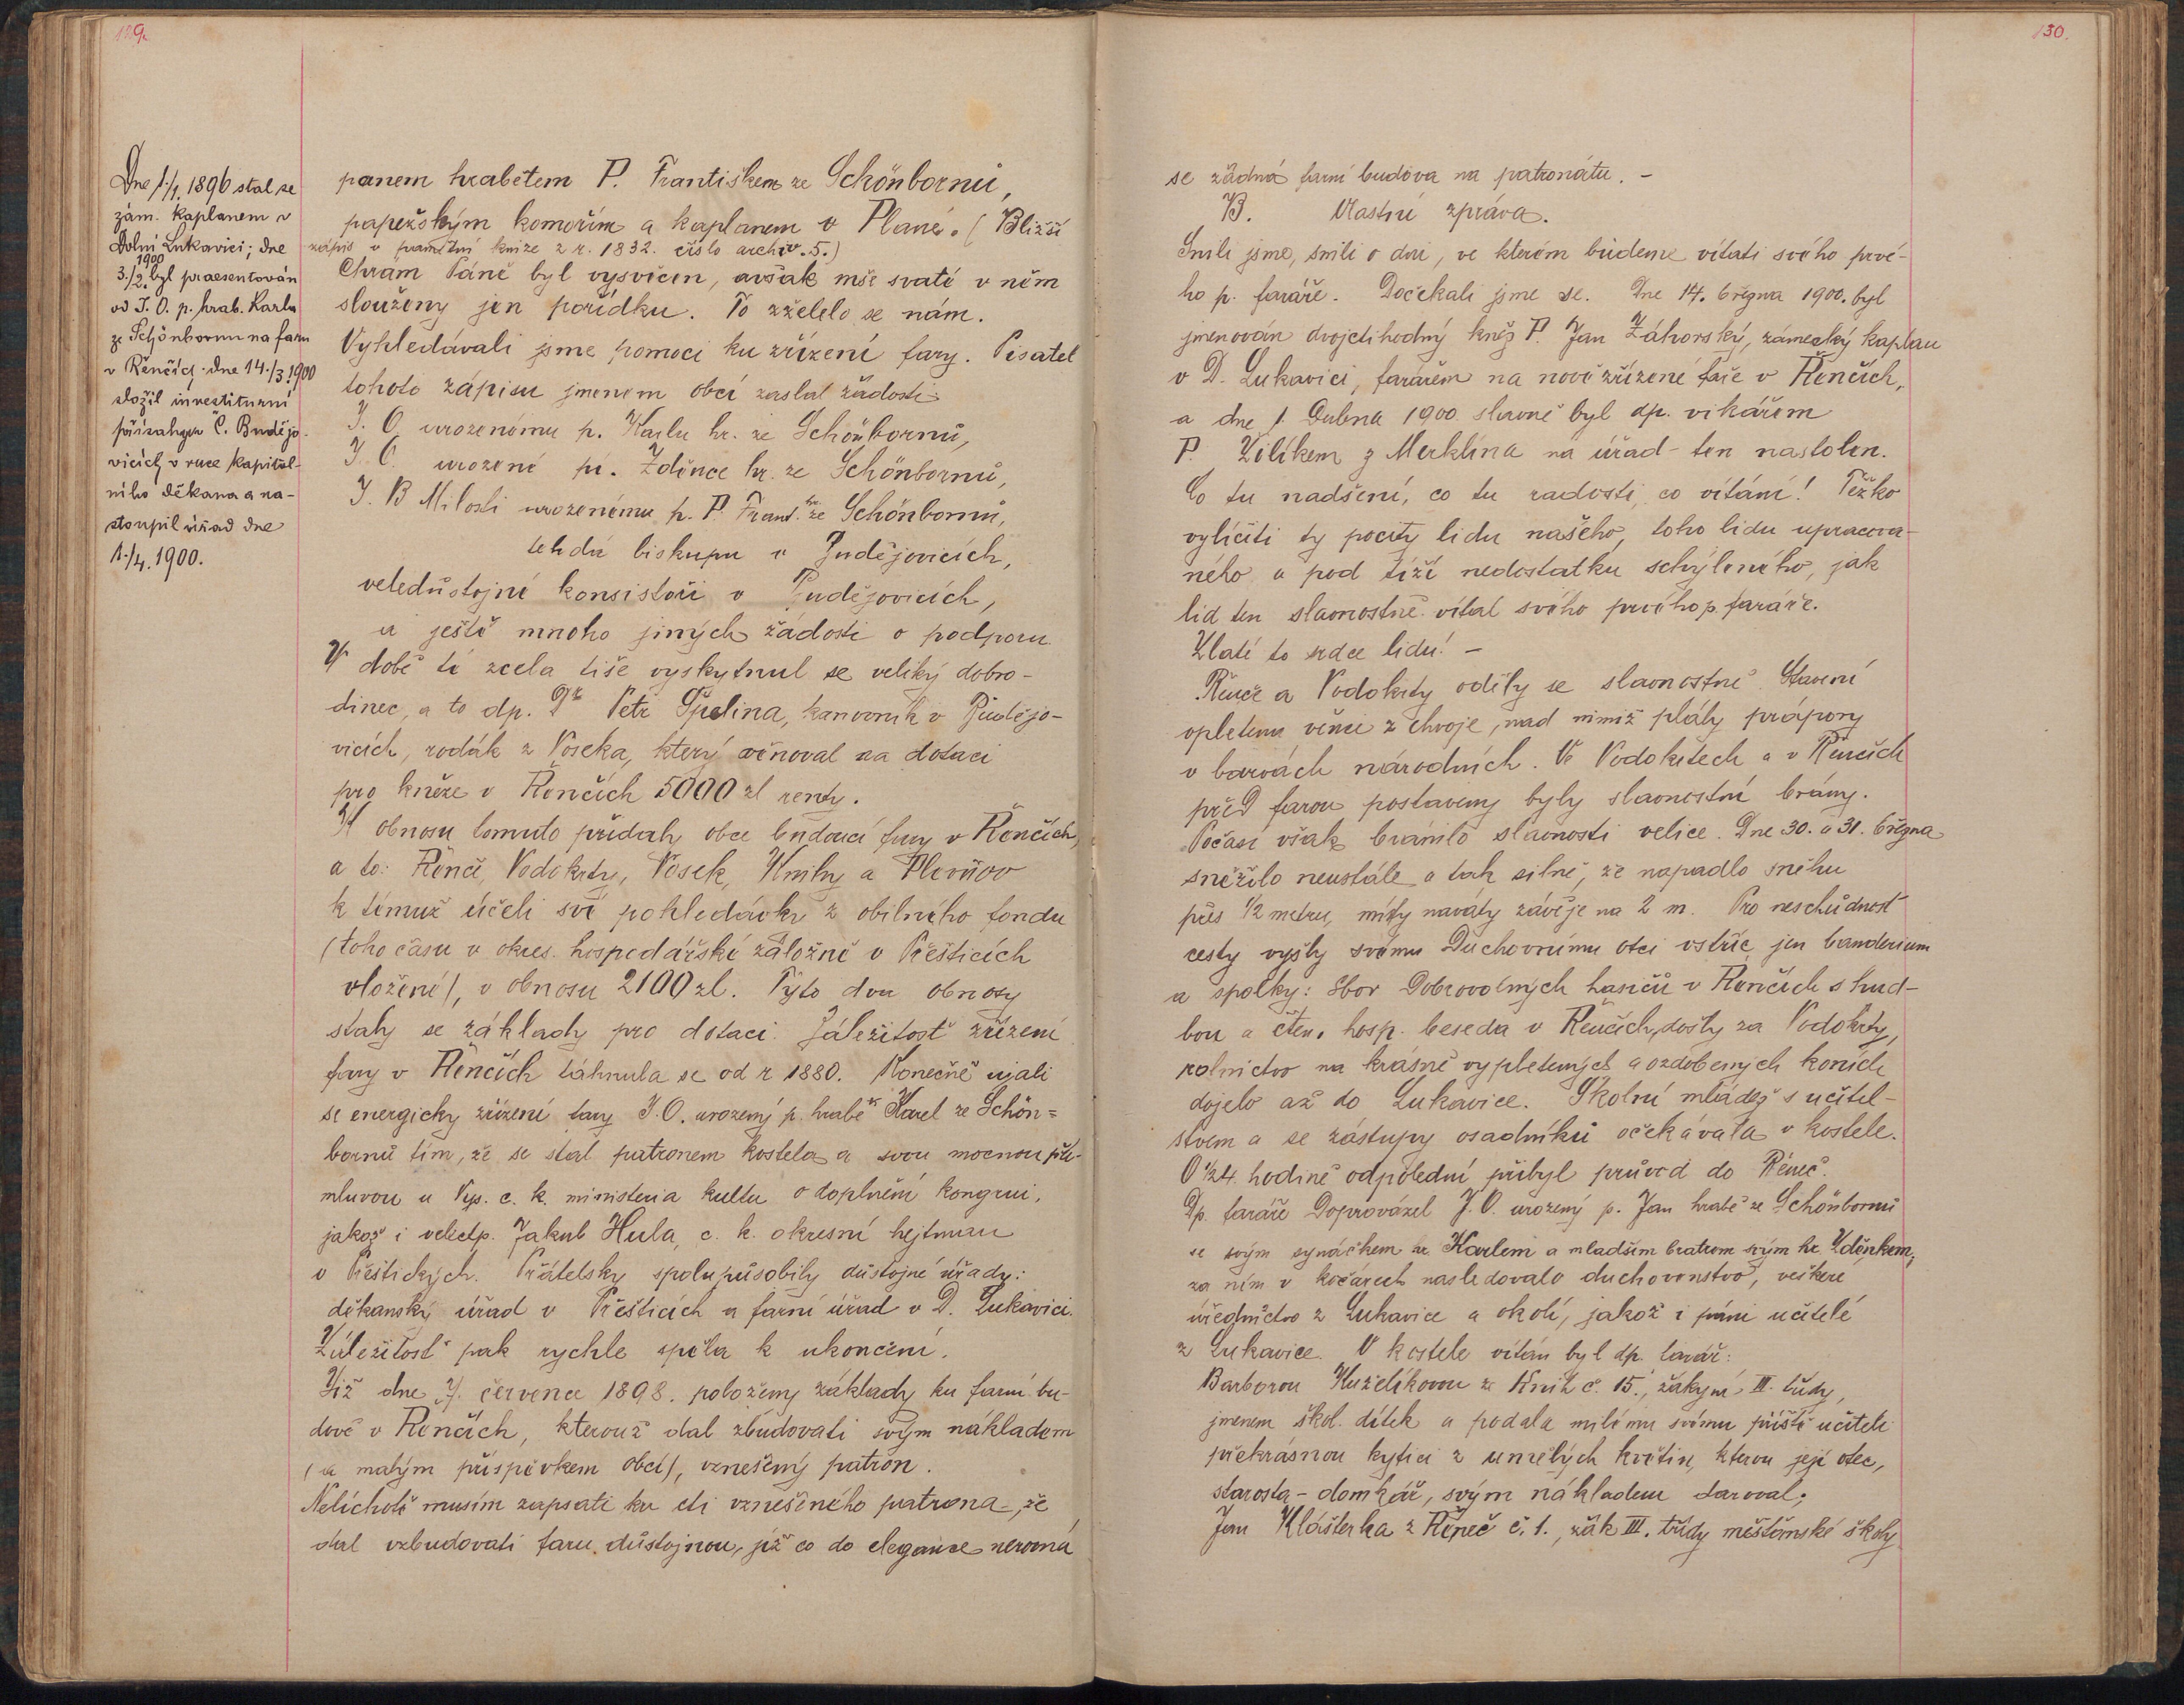 129.
Dne 1./1. 1896 stal se
zám. kaplanem v
Dolní Lukavici; dne
1900
3./2. byl praesentován
od J. O. p. hrab. Karla
ze Schönbornu na faru
v Řenčích. dne 14./3. 1900
složil investiturní
přísahu v Č. Budějo-
vicích v ruce kapitol-
ního děkana a na-
stoupil úřad dne
1./4. 1900.
panem hrabětem P. Františkem ze Schönbornů,
papežským komořím a kaplanem v Plané. (Bližší
zápis v pamětní knize z r. 1832. číslo archiv. 5.)
Chrám Páně byl vysvěcen, avšak mše svaté v něm
slouženy jen pořídku. To zželelo se nám.
Vyhledávali jsme pomoci ku zřízení fary. Pisatel
tohoto zápisu jmenem obcí zaslal žádosti
J. O. urozenému p. Karlu hr. ze Schönbornů,
J. O. urozené pí. Zděnce hr. ze Schönbornů,
J. B Milosti urozenému p. P. Frant. hr. ze Schönbornů,
tehdá biskupu v Budějovicích,
veledůstojné konsistoři v Budějovicích,
a ještě mnoho jiných žádostí o podporu.
V době té zcela tiše vyskytnul se veliký dobro-
dinec, a to dp. Dr Petr Špelina, kanovník v Budějo-
vicích, rodák z Voseka, který věnoval na dotaci
pro kněze v Řenčích 5000 zl renty.
K obnosu tomuto přidaly obce budoucí fary v Řenčích,
a to: Řenče, Vodokrty, Vosek, Knihy a Plevňov
k témuž účeli své pohledávky z obilního fondu
(toho času v okres. hospodářské záložně v Přešticích
vložené), v obnosu 2100 zl. Tyto dva obnosy
staly se základy pro dotaci. Záležitost zřízení
fary v Řenčích táhnula se od r 1880. Konečně ujali
se energicky zřízení fary J. O. urozený p. hrabě Karel ze Schön=
bornů tím, že se stal patronem kostela a svou mocnou pří-
mluvou u Vys. c. k. ministeria kultu o doplnění kongrui,
jakož i veléctp. Jakub Hula, c. k. okresní hejtman
v Přeštických. Přátelsky spolupůsobily důstojné úřady:
děkanský úřad v Přešticích a farní úřad v D. Lukavici.
Záležitost pak rychle spěla k ukončení.
Již dne 7. července 1898. položeny základy ku farní bu-
dově v Řenčích, kterouž dal zbudovati svým nákladem
(a malým příspěvkem obcí), vznešený patron.
Nelíchotě musím zapsati ku cti vznešeného patrona, že
dal vzbudovati faru důstojnou, jíž co do elegance nerovná
130.
se žádná farní budova na patronátu. -
B. Vlastní zpráva.
Snili jsme, snili o dni, ve kterém budeme vítati svého prvé-
ho p. faráře. Dočekali jsme se. Dne 14. března 1900. byl
jmenován dvojctihodný kněz P. Jan Záhorský, zámecký kaplan
v D. Lukavici, farářem na nově zřízené faře v Řenčích,
a dne 1. Dubna 1900. slavně byl dp. vikářem
P. Žilíkem z Merklína na úřad ten nastolen.
Co tu nadšení, co tu radosti, co vítání! Těžko
vylíčiti ty pocity lidu našeho, toho lidu upracova-
ného a pod tíží nedostatku schýleného, jak
lid ten slavnostně vítal svého prvého p. faráře.
Zlaté to srdce lidu! -
Řenče a Vodokrty oděly se slavnostně. Stavení
opletena věnci z chvoje, nad nimiž pláły prápory
v barvách národních. Ve Vodokrtech a v Řenčích
před farou postaveny byly slavnostní brány.
Počasí však bránilo slavnosti velice. Dne 30. a 31. března
sněžilo neustále a tak silně, že napadlo sněhu
přes 1/2 metru, místy naváty závěje na 2 m. Pro neschůdnost
cesty vyšly svému Duchovnímu otci vstříc jen banderium
a spolky: Sbor Dobrovolných hasičů v Řenčích s hud-
bou a čten. hosp. beseda v Řenčích, došly za Vodokrty,
rolnictvo na krásně vypletených a ozdobených koních
dojelo až do Lukavice. Školní mládež s učitel-
stvem a se zástupy osadníků očekávala v kostele.
O 1/2 4. hodině odpolední přibyl průvod do Řeneč.
Dp. faráře Doprovázel J. O. urozený p. Jan hrabě ze Schönbornů
se svým synáčkem hr. Karlem a mladším bratrem svým hr. Zděnkem,
za ním v kočárech následovalo duchovenstvo, veškeré
úřednictvo z Lukavice a okolí, jakož i páni učitelé
z Lukavice. V kostele vítán byl dp. farář:
Barborou Kuželíkovou ze Knih č. 15., žákyní II. třídy,
jmenem škol. dítek a podala milému svému příští učiteli
překrásnou kytici z umělých květin, kterou její otec,
starosta - domkář, svým nákladem daroval;
Jan Klášterka z Řeneč č. 1., žák III. třídy měštanské školy